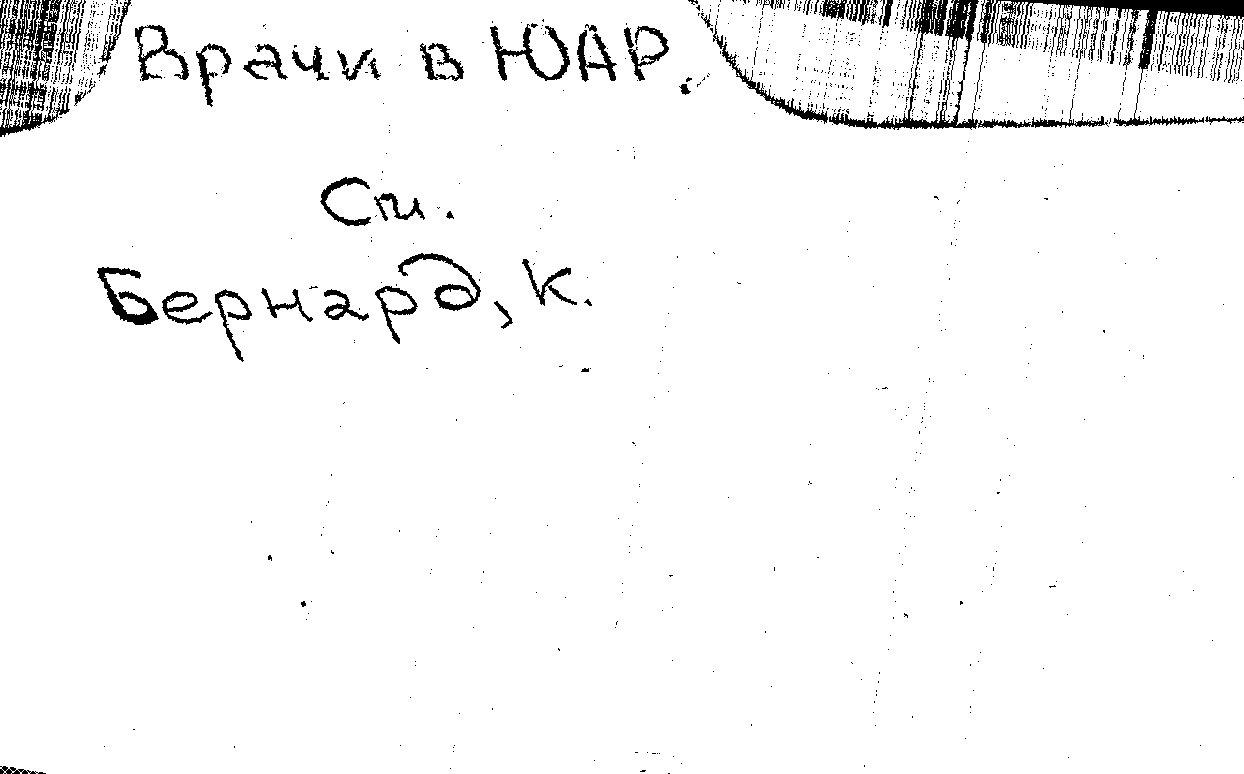 Врачи в ЮАР.
См.
Бернард, К.